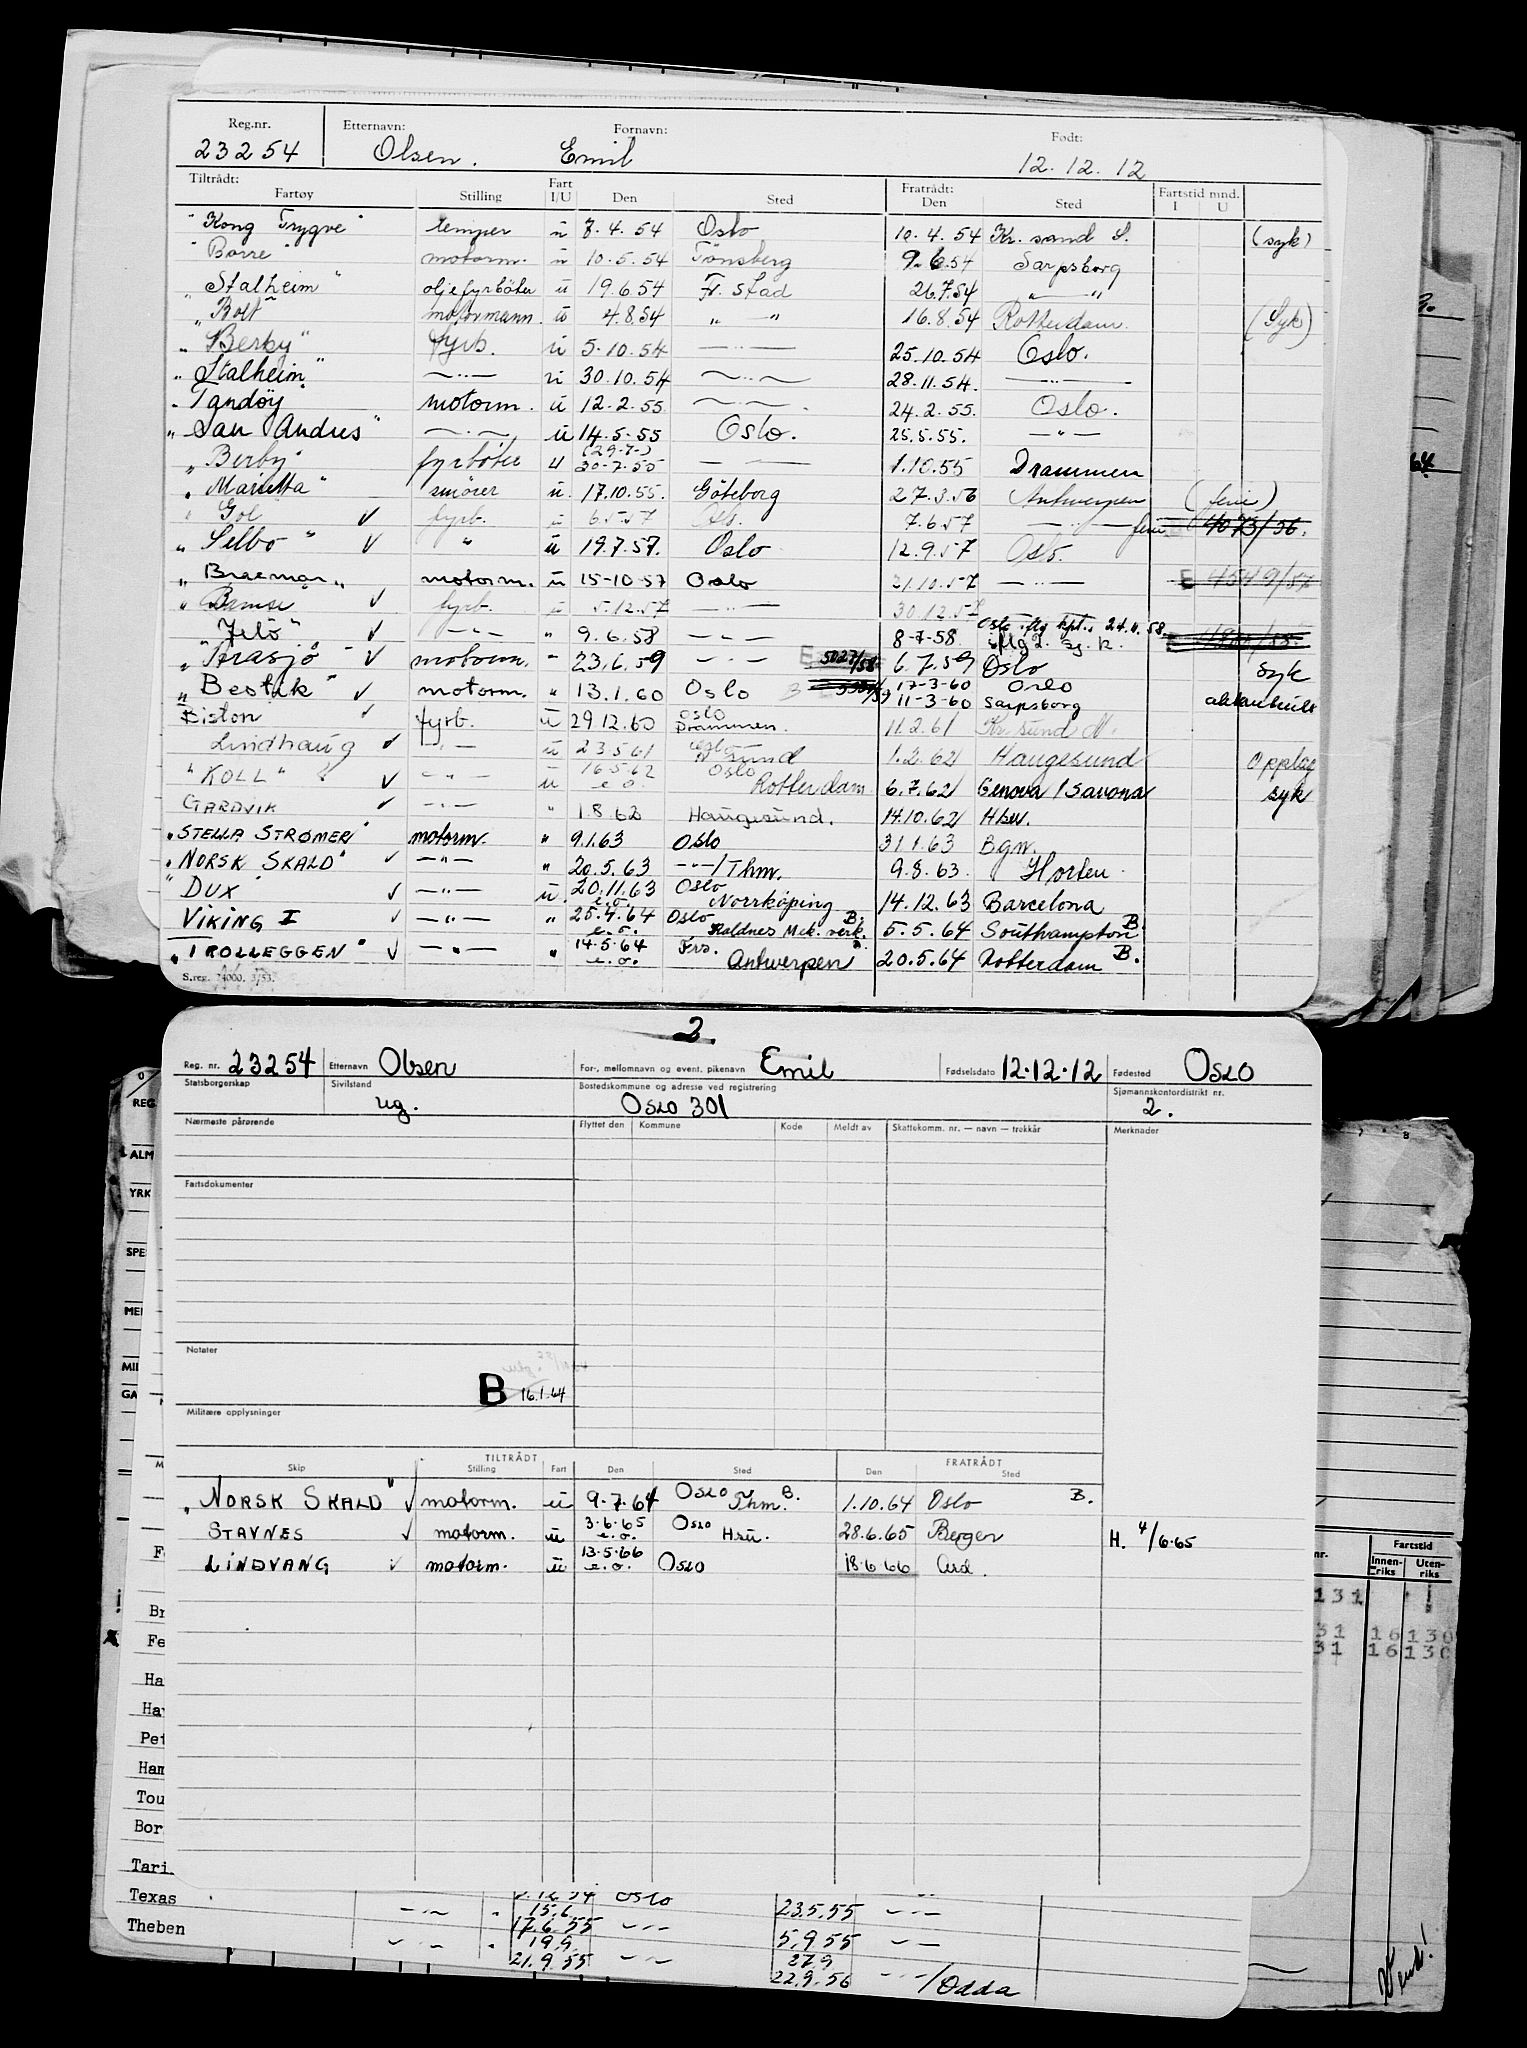 Reg.nr. Etternavn: Fornavn: Født:
23254 Olsen. Emil 12.12.12
Tiltrådt: Fratrådt: Fartstid mnd.
Fartøy Stilling Fart I/U Den Sted Den Sted I U
"Kong Trygve" lemper u 7.4.54 Oslo 10.4.54 Kr. sand S. (syk)
"Borre" motorm. u 10.5.54 Tönsberg 9.6.54 Sarpsborg
"Stalheim" oljefyrböter u 19.6.54 Fr. stad 26.7.54 — " —
"Rolt" motormann. u 4.8.54 " — " 16.8.54 Rotterdam. (Syk)
"Berby" fyrb. u 5.10.54 — " — 25.10.54 Oslo.
"Stalheim" — " — u 30.10.54 — " — 28.11.54. — " —
"Tandöy" motorm. u 12.2.55 — " — 24.2.55. Oslo.
"San Andres" — " — u 14.5.55 Oslo. 25.5.55. — " —
(29-7-)
"Berby" fyrböter u 30-7-55 — — 1.10.55 Drammen
"Marietta" smörer u. 17.10.55. Göteborg 27.3.56 Antwerpen (ferie)
"Gol" ✓ fyrb. u 6.5.57 Osl. 7.6.57 — " — ferie 4073/56.
"Selbo" ✓ " u 19.7.57. Oslo 12.9.57 Oslo.
"Braemar" motorm. u 15-10-57 Oslo 31.10.57 — " — E 4549/57
"Bamse" ✓ fyrb. u 5.12.57 — " — 30.12.57
Oslo iflg kpt. 24.11.58.
"Jelö" ✓ — " — " 9.6.58 — " — 8-7-58 iflg d. sj. k.
"Arasjö" ✓ motorm. " 23.6.59 — " — E 5027/58 6.7.59 Oslo syk
"Bestik" ✓ motorm. " 13.1.60 Oslo 17-3-60 Oslo
11-3-60 Sarpsborg
Biston ✓ fyrb. u 29.12.60 Oslo Drammen. 11.2.61 Kr. sund N.
Lindhaug ✓ — " — u 23.5.61 Oslo 1.2.62 Haugesund Opplag
"KOLL" ✓ — " — u 16.5.62 e.o. Oslo Rotterdam 6.7.62 Genova/Savona syk
GARDVIK ✓ — " — " 1.8.62 Haugesund. 14.10.62 Hsu.
"STELLA STRØMER" motorm. " 9.1.63 Oslo 31.1.63 Bgn.
"NORSK SKALD" ✓ — " — " 20.5.63 — " —/Thm. 9.8.63. Horten
"DUX" ✓ — " — u. 20.11.63 e.o. Oslo Norrköping 14.12.63 Barcelona
VIKING I ✓ — " — " 25.4.64 e.o. Oslo Kaldnes Mek. verk. B. 5.5.64 Southampton B
"TROLLEGGEN" ✓ — " — " 14.5.64 e.o. Frs. Antwerpen 20.5.64 Rotterdam B.
S.reg. 74000. 3/53.
2.
Reg. nr. 23254 Etternavn Olsen For-, mellomnavn og event. pikenavn Emil Fødselsdato 12.12.12 Fødested OSLO
Statsborgerskap Sivilstand Bostedskommune og adresse ved registrering Sjømannskontordistrikt nr.
ug. OSLO 301 2.
Nærmeste pårørende Flyttet den Kommune Kode Meldt av Skattekomm. nr. — navn — trekkår Merknader
Fartsdokumenter
Notater
B 16.1.64
Militære opplysninger
TILTRÅDT FRATRÅDT
Skip Stilling Fart Den Sted Den Sted
"NORSK SKALD" ✓ motorm. u 9.7.64 OSLO Thm. B. 1.10.64 Oslo B.
STAVNES ✓ motorm. u 3.6.65 e.o. Oslo Hsu. 28.6.65 Bergen H. 4/6.65
LINDVANG ✓ motorm. u 13.5.66 e.o. OSLO 18.6.66 Ard.
REG
ALM
YRK
SPE
MIL
GA
Fartstid
nr. Innen-riks Uten-riks
131
31 16 130
31 16 130
Br
Fe
Ha
Hav
Pet
Ham
Tou
Bor
Tari
Oslo
Texas — " — " 15.6. 17.6.55 — " — 23.5.55 — " —
Theben — " — " 19.9. 21.9.55 — " — 5.9.55 — " —
27.9
22.9.56 — " —/Odda
Vend!